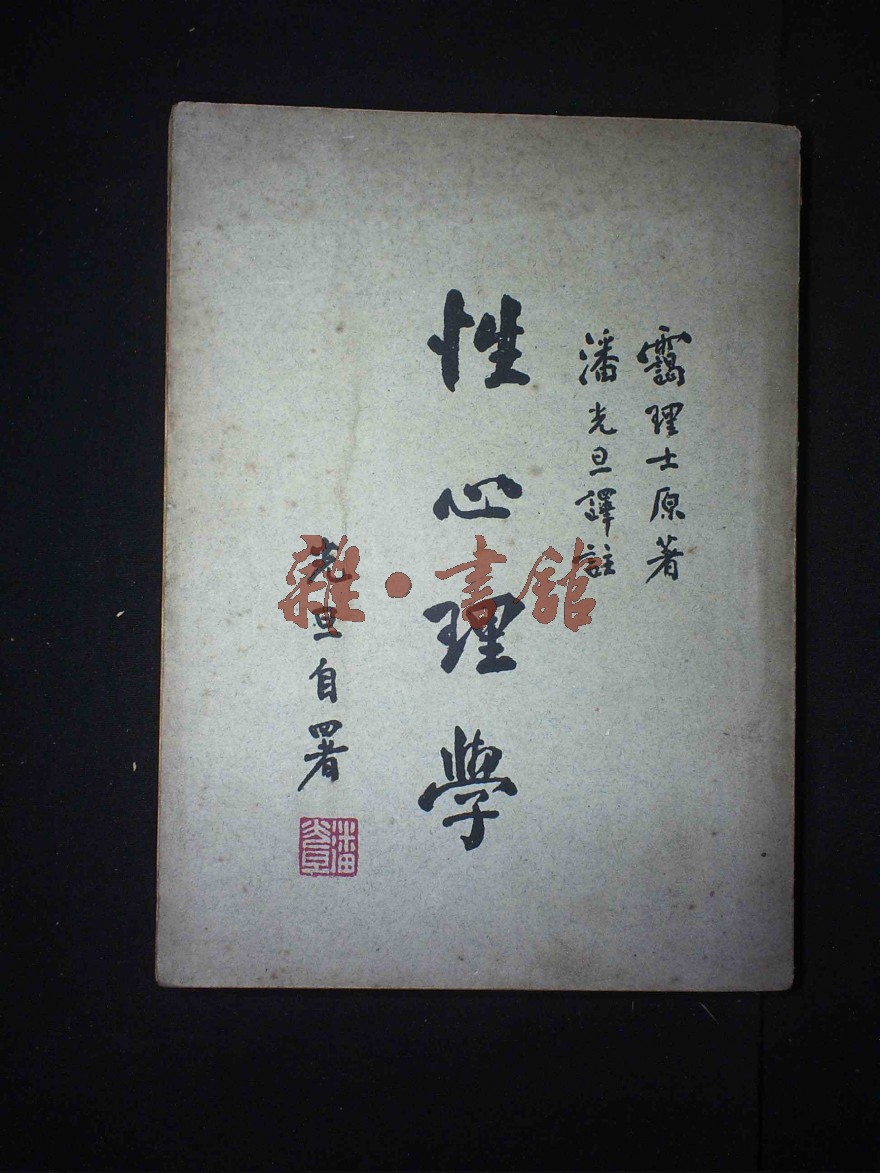 靄理士原著
潘光旦譯註
性心理學
光旦自署
潘光旦
雜·書館